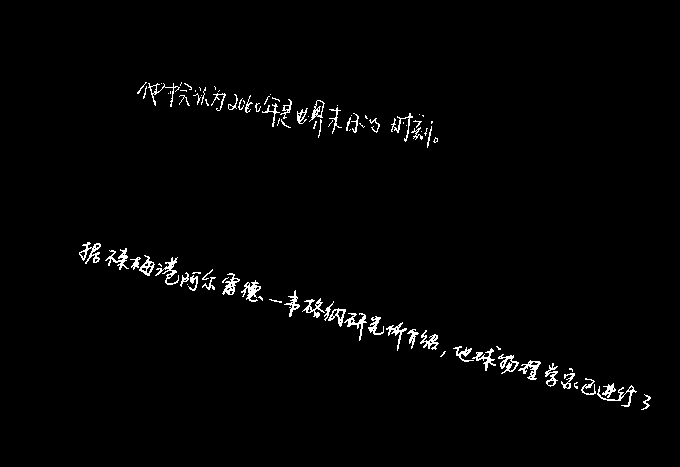 他认为2060年是世界末日的时刻。
据不来梅港阿尔雷德—韦格纳研究所介绍，地球物理学家已进行了